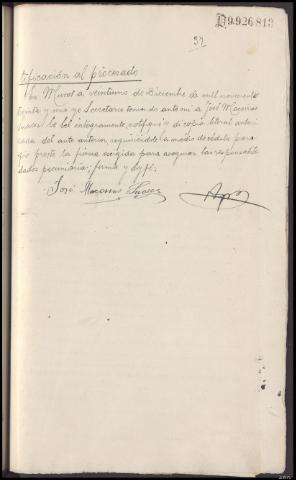 D.9.926.813
32
tificación al procesado
En Muros a veintiuno de Diciembre de mil novecientos
treinta y uno yo Secretario teniendo ante mi a José Maceiras
Suarez le leí íntegramente, notifiqué y di copia literal autori
zada del auto anterior, requiriéndole a medio de cédula para
que preste la fianza exigida para asegurar las responsabili
dades pecuniarias; firma y doy fé.
José Maceiras Suarez